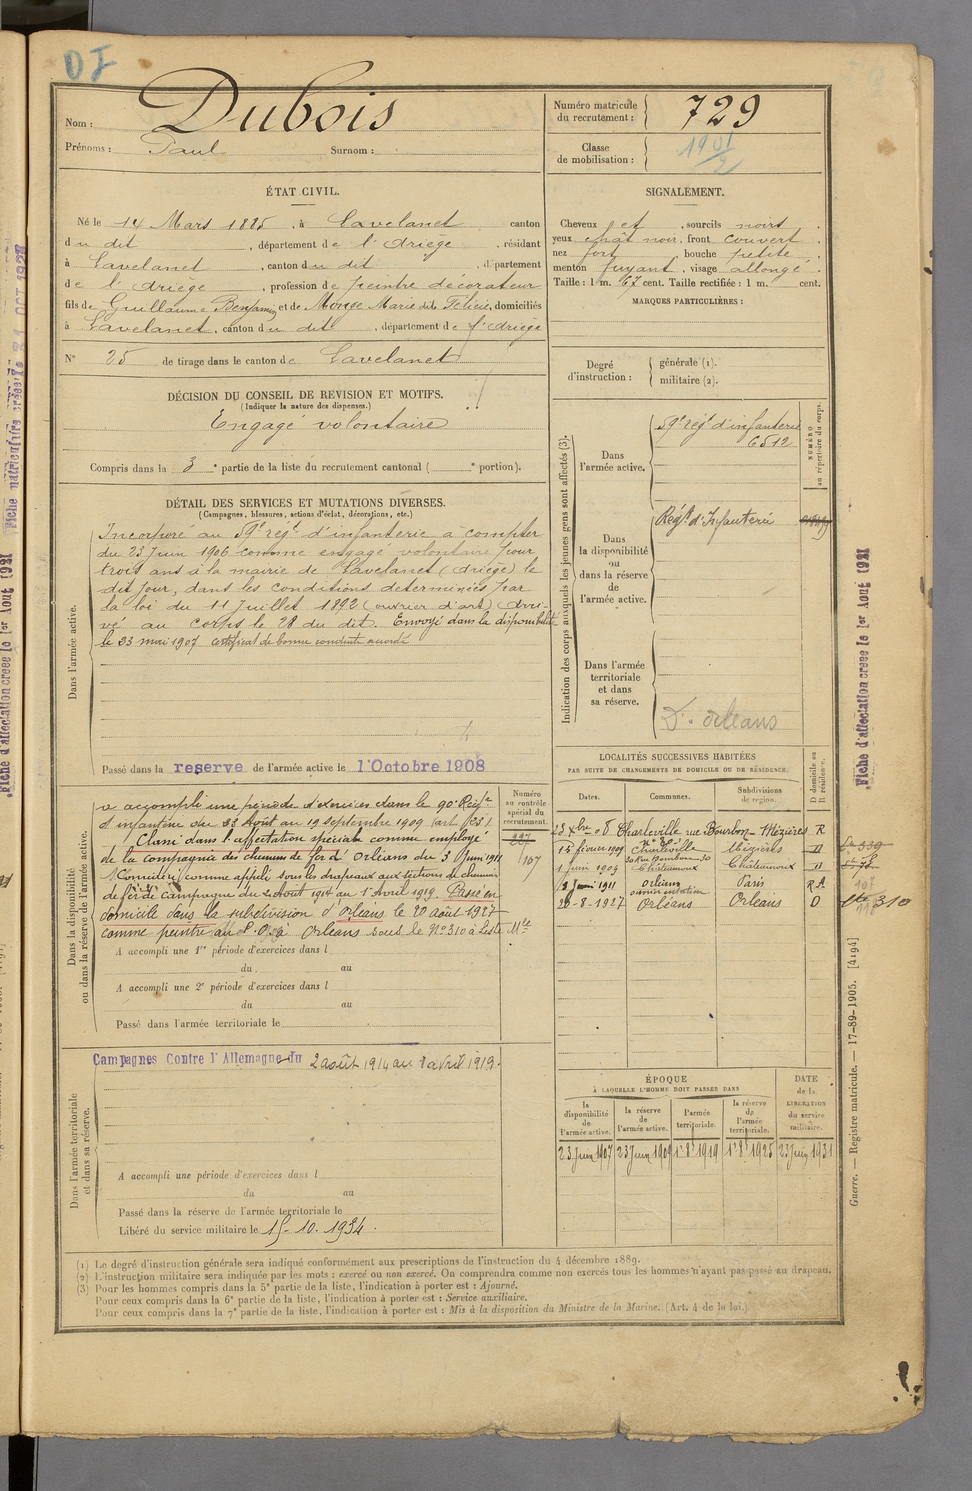 DJ
Nom : Dubois
Prénoms : Paul Surnom :
Numéro matricule du recrutement : 729
Classe de mobilisation : 1901/2
ÉTAT CIVIL.
Né le 14 Mars 1885, à Lavelanet canton
du dit, département de l'Ariège, résidant
à Lavelanet, canton du dit, département
de l'Ariège, profession de peintre décorateur
fils de Guillaume Benjamin et de Monge Marie dite Félicie, domiciliés
à Lavelanet, canton du dit, département de l'Ariège
N° 25 de tirage dans le canton de Lavelanet
SIGNALEMENT.
Cheveux et, sourcils noirs.
yeux chât noir, front couvert.
nez fort, bouche petite.
menton fuyant, visage allongé.
Taille : 1 m. 67 cent. Taille rectifiée : 1 m. cent.
MARQUES PARTICULIÈRES :
Degré d'instruction : générale (1).
militaire (2).
DÉCISION DU CONSEIL DE REVISION ET MOTIFS.
(Indiquer la nature des dispenses.)
Engagé volontaire
Compris dans la 3e partie de la liste du recrutement cantonal ( e portion).
DÉTAIL DES SERVICES ET MUTATIONS DIVERSES.
(Campagnes, blessures, actions d'éclat, décorations, etc.)
Dans l'armée active.
Incorporé au 59e régt d'infanterie à compter
du 23 Juin 1906 comme engagé volontaire pour
trois ans à la mairie de Lavelanet (Ariège) le
dit jour, dans les conditions déterminées par
la loi du 11 Juillet 1892 (ouvrier d'art) Arri-
vé au corps le 28 du dit. Envoyé dans la disponibilité
le 23 mai 1907 certificat de bonne conduite accordé
Passé dans la reserve de l'armée active le 1'Octobre 1908
Indication des corps auxquels les jeunes gens sont affectés (3).
NUMÉRO au répertoire du corps.
Dans l'armée active.
59e rég d'infanterie
6512
Dans la disponibilité ou dans la réserve de l'armée active.
Régt d'Infanterie
Dans l'armée territoriale et dans sa réserve.
D. orleans
Dans la disponibilité ou dans la réserve de l'armée active.
Numéro au contrôle spécial du recrutement.
a accompli une période d'exercices dans le 90e Régt
d'infanterie du 23 Août au 19 septembre 1909 (art
Classé dans l'affectation spéciale comme employé
de la compagnie des chemin de fer d'Orléans du 3 Juin 1911
Considéré comme appelé sous les drapeaux aux sections de chemin
de fer de campagne du 2 Août 1914 au 1' Avril 1919. Passé en
domicile dans la subdivision d'Orléans le 20 août 1927
comme peintre au P.O. à Orleans sous le N° 310 à Liste Mle
A accompli une 1re période d'exercices dans l
du au
A accompli une 2e période d'exercices dans l
du au
Passé dans l'armée territoriale le
LOCALITÉS SUCCESSIVES HABITÉES
PAR SUITE DE CHANGEMENTS DE DOMICILE OU DE RÉSIDENCE.
Dates. Communes. Subdivisions de region. D domicile ou R résidence.
23 Xbre 08 Charleville rue Bourbon Mézières R
15 février 1909 Charleville Mézières
1 Juin 1909 Châteauroux Châteauroux
2 Juin 1911 Orléans Paris
20-8-1927 Orléans Orleans D 310
Dans l'armée territoriale et dans sa réserve.
Campagnes Contre l'Allemagne du 2 août 1914 au 1 avril 1919.
A accompli une période d'exercices dans l
du au
Passé dans la réserve de l'armée territoriale le
Libéré du service militaire le 15-10-1934.
ÉPOQUE
À LAQUELLE L'HOMME DOIT PASSER DANS
la disponibilité de l'armée active. la réserve de l'armée active. l'armée territoriale. la réserve de l'armée territoriale. DATE de la LIBÉRATION du service militaire.
23 Juin 1907 23 Juin 1909 1er 8e 1919 1er 8e 1925 23 Juin 1931
(1) Le degré d'instruction générale sera indiqué conformément aux prescriptions de l'instruction du 4 décembre 1889.
(2) L'instruction militaire sera indiquée par les mots : exercé ou non exercé. On comprendra comme non exercés tous les hommes n'ayant pas passé au drapeau.
(3) Pour les hommes compris dans la 5e partie de la liste, l'indication à porter est : Ajourné.
Pour ceux compris dans la 6e partie de la liste, l'indication à porter est : Service auxiliaire.
Pour ceux compris dans la 7e partie de la liste, l'indication à porter est : Mis à la disposition du Ministre de la Marine. (Art. 4 de la loi.)
Fiche d'affectation créée le 1er Aout 1921
Guerre. — Registre matricule. — 17-89-1905. [4194]
Fiche d'affectation créée le 1er Aout 1921
Fiche matriculaire créée le 31 OCT 1928